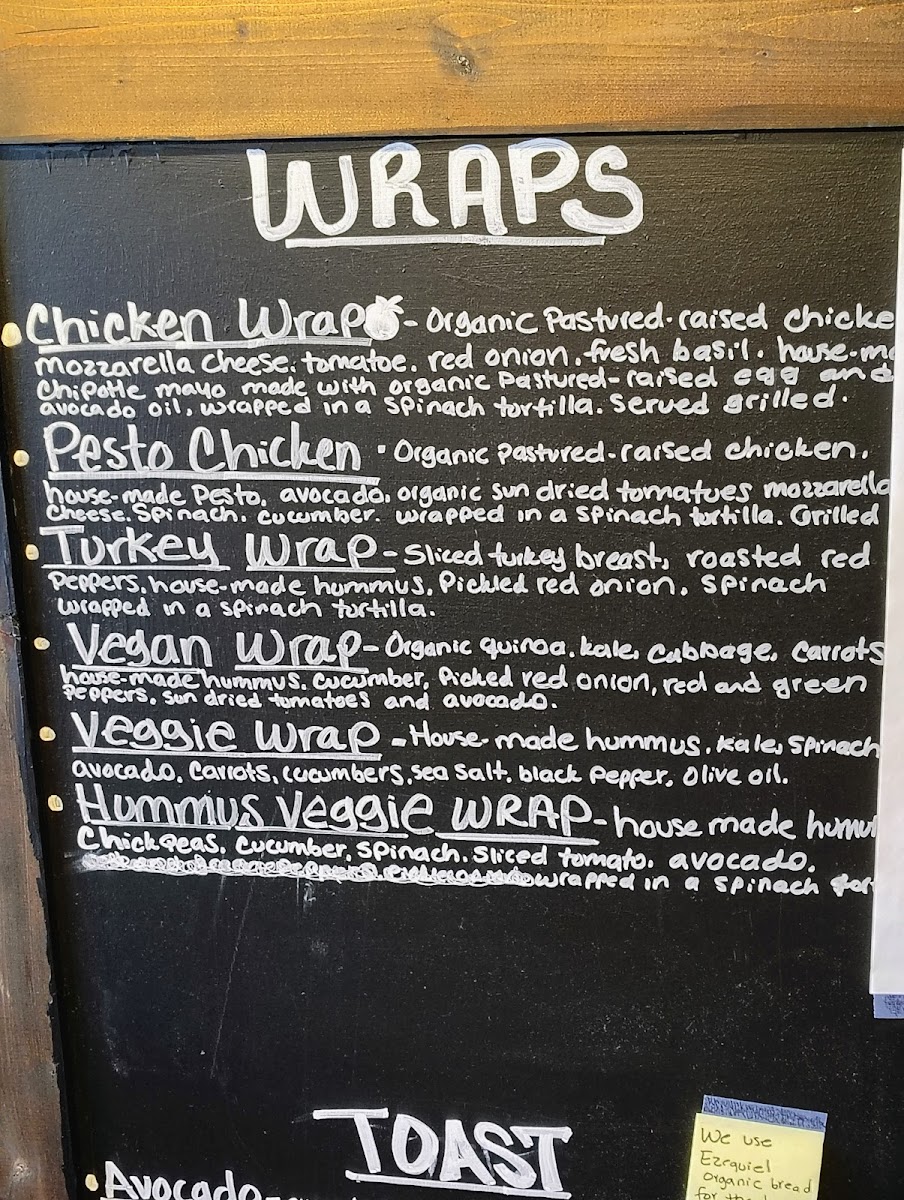 WRAPS
Chicken Wrap - Organic Pastured-raised chicke
mozzarella cheese. tomatoe. red onion. fresh basil. house-m
Chipotle mayo made with organic Pastured-raised egg and
avocado oil, wrapped in a spinach tortilla. Served grilled.
Pesto Chicken - Organic pastured-raised chicken.
house-made Pesto, avocado, organic sun dried tomatoes mozzarella
Cheese, Spinach, cucumber. wrapped in a spinach tortilla. Grilled
Turkey Wrap - Sliced turkey breast, roasted red
Peppers, house-made hummus, Pickled red onion, spinach
wrapped in a spinach tortilla.
Vegan Wrap - Organic quinoa, kale, cabbage, carrots
house-made hummus. cucumber, Picked red onion, red and green
Peppers, sun dried tomatoes and avocado.
Veggie Wrap - House-made hummus, kale, spinach
avocado, carrots, cucumbers, sea salt, black pepper, olive oil.
Hummus Veggie WRAP - house made humu
Chickpeas, cucumber, spinach. sliced tomato, avocado,
wrapped in a spinach tor
TOAST
Avocado -
We use
Ezequiel
organic bread
for the